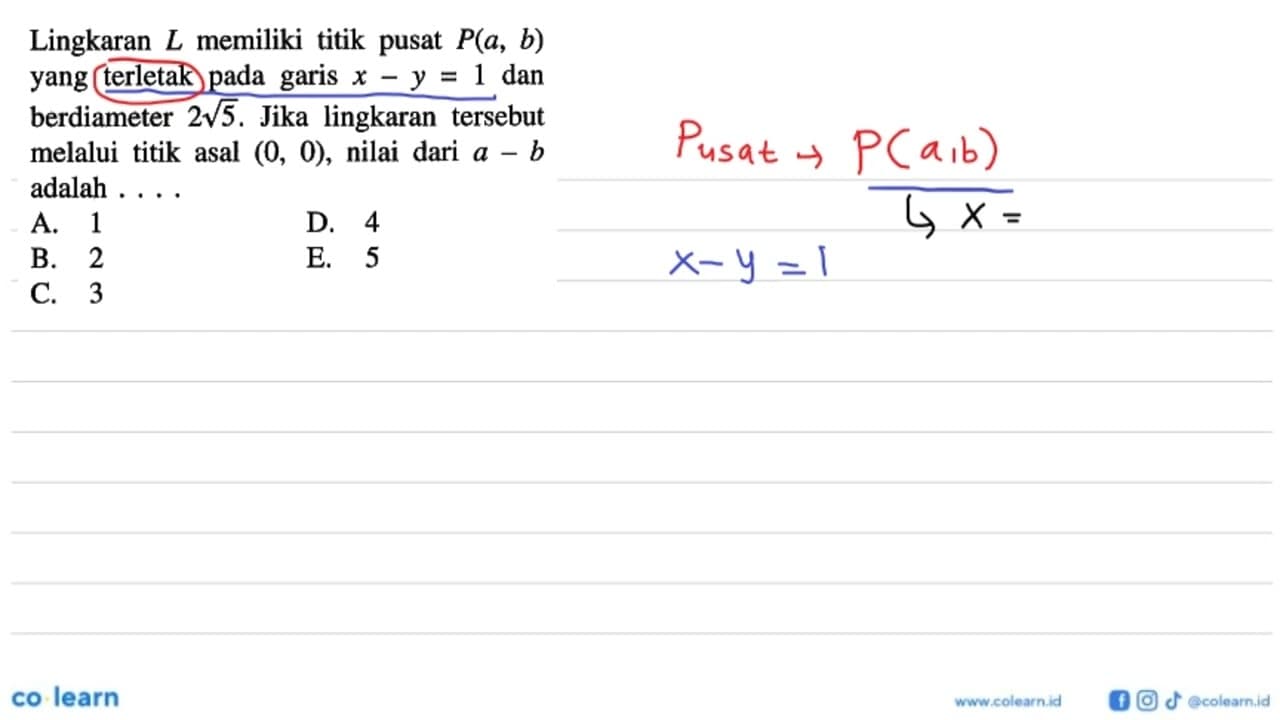 Lingkaran L memiliki titik pusat P(a, b)
yang terletak pada garis x – y = 1 dan
berdiameter 2√5. Jika lingkaran tersebut
melalui titik asal (0, 0), nilai dari a – b
adalah . . . .
A. 1
B. 2
C. 3
D. 4
E. 5
Pusat → P(a,b)
↳ x =
x – y = 1
co learn
www.colearn.id
@colearn.id